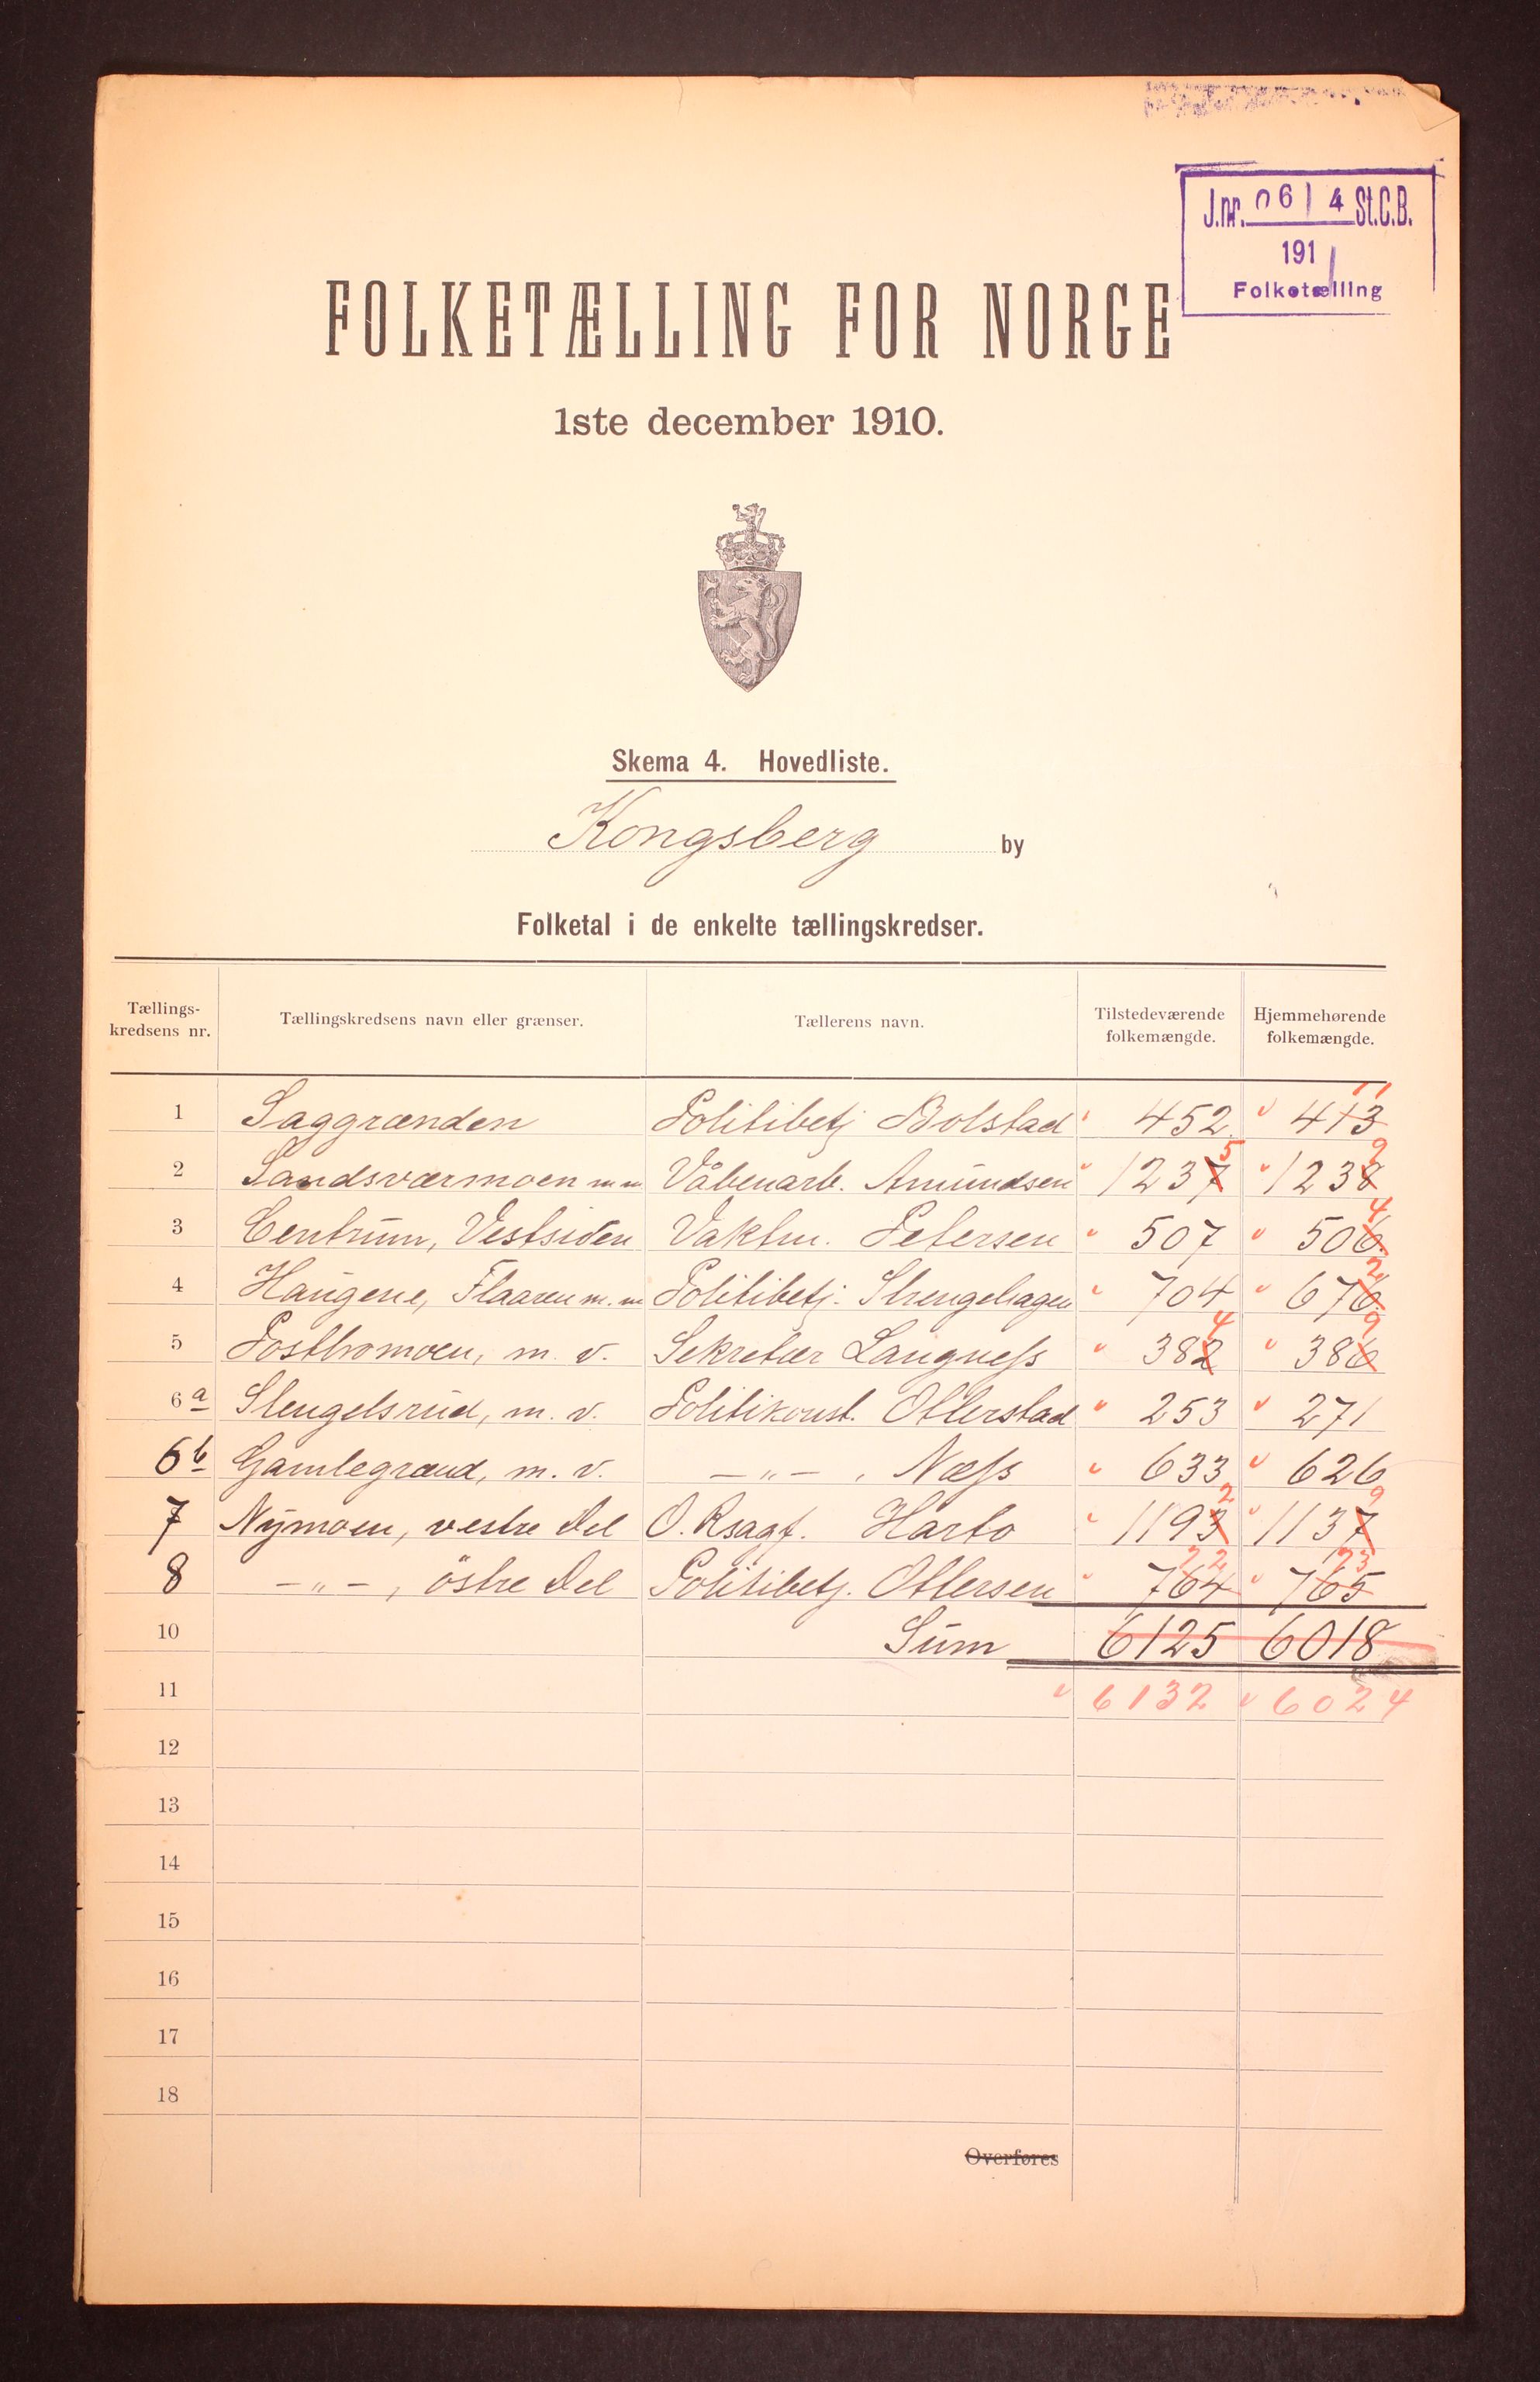 J.nr. 0614 St.C.B.
1911
Folketælling
FOLKETÆLLING FOR NORGE
1ste december 1910.
Skema 4. Hovedliste.
Kongsberg by
Folketal i de enkelte tællingskredser.
Tællings-kredsens nr. Tællingskredsens navn eller grænser. Tællerens navn. Tilstedeværende folkemængde. Hjemmehørende folkemængde.
11
1 Saggrænden Politibetj Bolstad 452 413
5 9
2 Sandsværmoen m m Våbenarb. Amundsen 1237 1238
4
3 Centrum, Vestsiden Vaktm. Petersen 507 506
2
4 Haugene, Flaaren m. m Politibetj. Strengehagen 704 676
4 9
5 Postbromoen, m. v. Sekretær Langness 382 386
6 a Stengelsrud, m. v. Politikonst. Otterstad 253 271
6 b Gamlegrænd, m. v. — " — , Næss 633 626
2 9
7 Nymoen, vestre Del O. Rsagf. Harbo 1193 1137
72 73
8 — " — , östre Del Politibetj. Ottersen 764 765
10 Sum 6125 6018
11 6132 6024
12
13
14
15
16
17
18
Overføres